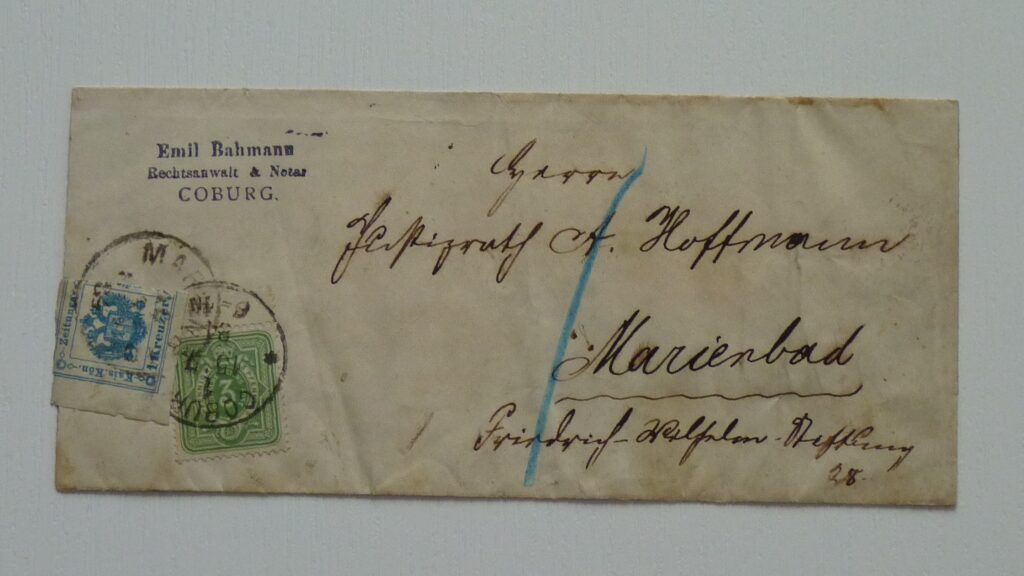 Emil Bahmann
Rechtsanwalt & Notar
COBURG.
Herrn
Justizrath A. Hoffmann
Marienbad
Friedrich-Wilhelm-Stiftung
28.
MAR
COBUR
15
3
1 Kreuzer
Kais. Kön.
Zeitungs